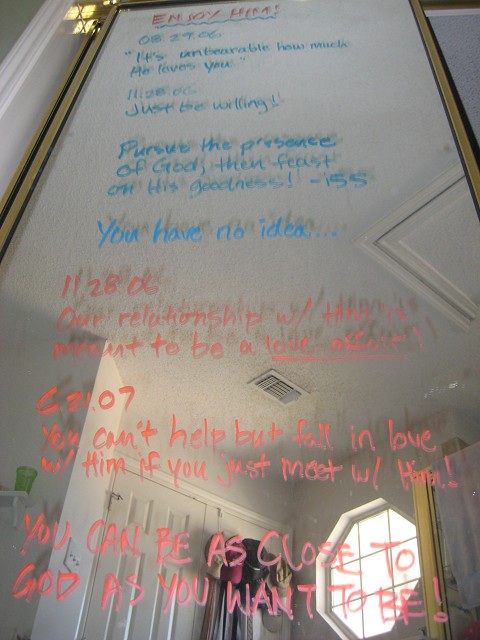 ENJOY HIM!
08.29.06
"It's unbearable how much
He loves you"
11.28.06
Just be willing!
Pursue the presence
of God, then feast
on His goodness! -i55
You have no idea...
11.28.06
Our relationship w/ Him is
meant to be a love affair!
6.21.07
You can't help but fall in love
w/ Him if you just meet w/ Him!
YOU CAN BE AS CLOSE TO
GOD AS YOU WANT TO BE!